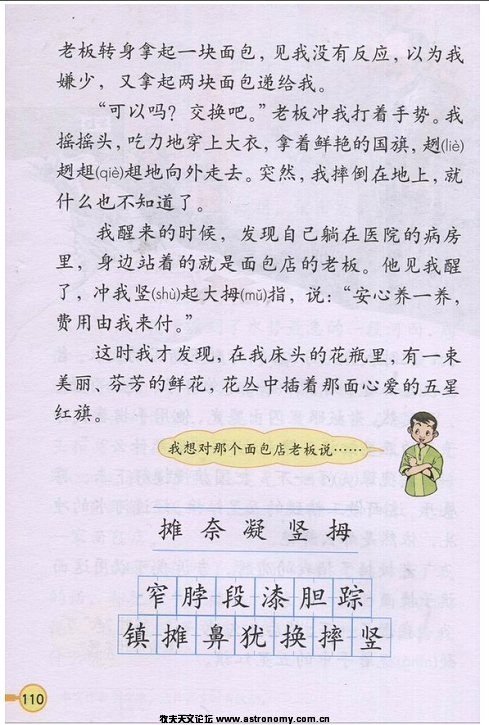 老板转身拿起一块面包，见我没有反应，以为我
嫌少，又拿起两块面包递给我。
“可以吗？交换吧。”老板冲我打着手势。我
摇摇头，吃力地穿上大衣，拿着鲜艳的国旗，趔(liè)
趔趄(qiè)趄地向外走去。突然，我摔倒在地上，就
什么也不知道了。
我醒来的时候，发现自己躺在医院的病房
里，身边站着的就是面包店的老板。他见我醒
了，冲我竖(shù)起大拇(mǔ)指，说：“安心养一养，
费用由我来付。”
这时我才发现，在我床头的花瓶里，有一束
美丽、芬芳的鲜花，花丛中插着那面心爱的五星
红旗。
我想对那个面包店老板说……
摊 奈 凝 竖 拇
窄脖段漆胆踪
镇摊鼻犹换摔竖
110
牧夫天文论坛 www.astronomy.com.cn